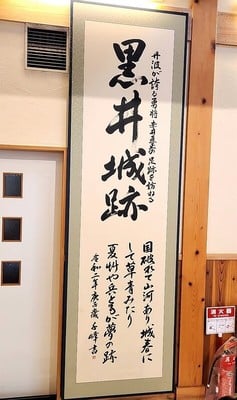 丹波が誇る勇将 赤井 足跡を訪ねる
黒井城跡
国破れて山河あり 城春に
して草青みたり
夏艸や兵どもが夢の跡
令和二年庚子歳 千峰書
消火器